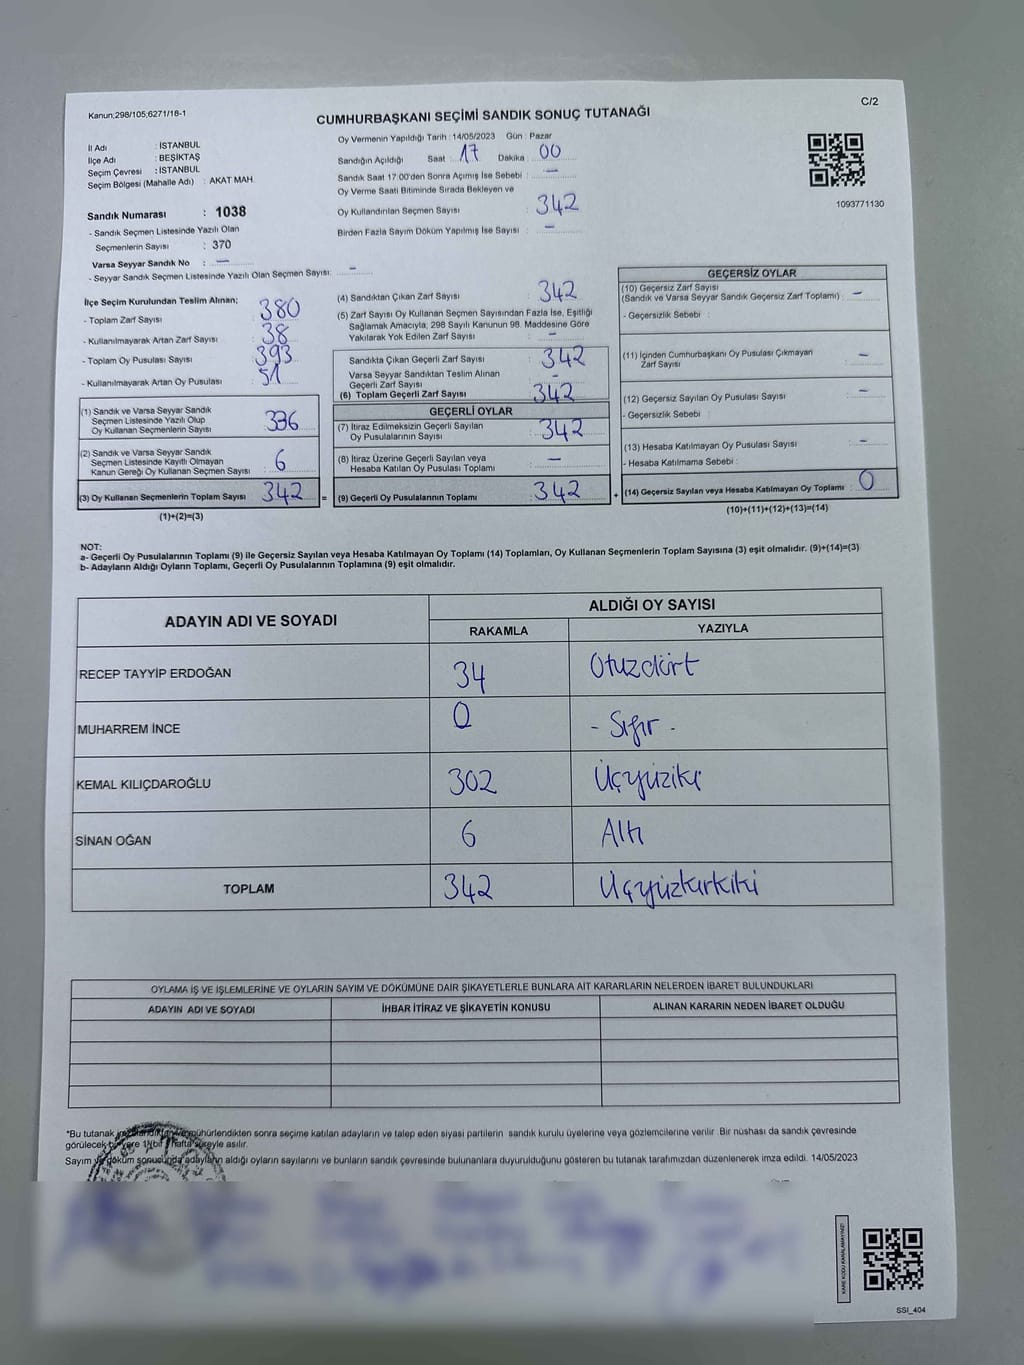 Kanun;298/105;6271/18-1
C/2
CUMHURBAŞKANI SEÇİMİ SANDIK SONUÇ TUTANAĞI
İl Adı : İSTANBUL
İlçe Adı : BEŞİKTAŞ
Seçim Çevresi : İSTANBUL
Seçim Bölgesi (Mahalle Adı) : AKAT MAH.
Sandık Numarası : 1038
- Sandık Seçmen Listesinde Yazılı Olan
Seçmenlerin Sayısı : 370
Varsa Seyyar Sandık No : —
- Seyyar Sandık Seçmen Listesinde Yazılı Olan Seçmen Sayısı: —
Oy Vermenin Yapıldığı Tarih : 14/05/2023 Gün : Pazar
Sandığın Açıldığı Saat : 17 Dakika : 00
Sandık Saat 17.00'den Sonra Açımış İse Sebebi : —
Oy Verme Saati Bitiminde Sırada Bekleyen ve
Oy Kullandırılan Seçmen Sayısı : 342
Birden Fazla Sayım Döküm Yapılmış İse Sayısı : —
1093771130
İlçe Seçim Kurulundan Teslim Alınan;
- Toplam Zarf Sayısı : 380
- Kullanılmayarak Artan Zarf Sayısı : 38
- Toplam Oy Pusulası Sayısı : 393
- Kullanılmayarak Artan Oy Pusulası : 51
(1) Sandık ve Varsa Seyyar Sandık
Seçmen Listesinde Yazılı Olup
Oy Kullanan Seçmenlerin Sayısı : 336
(2) Sandık ve Varsa Seyyar Sandık
Seçmen Listesinde Kayıtlı Olmayan
Kanun Gereği Oy Kullanan Seçmen Sayısı : 6
(3) Oy Kullanan Seçmenlerin Toplam Sayısı : 342 =
(1)+(2)=(3)
(4) Sandıktan Çıkan Zarf Sayısı : 342
(5) Zarf Sayısı Oy Kullanan Seçmen Sayısından Fazla İse, Eşitliği
Sağlamak Amacıyla; 298 Sayılı Kanunun 98. Maddesine Göre
Yakılarak Yok Edilen Zarf Sayısı : —
Sandıkta Çıkan Geçerli Zarf Sayısı : 342
Varsa Seyyar Sandıktan Teslim Alınan
Geçerli Zarf Sayısı : -
(6) Toplam Geçerli Zarf Sayısı : 342
GEÇERLİ OYLAR
(7) İtiraz Edilmeksizin Geçerli Sayılan
Oy Pusulalarının Sayısı : 342
(8) İtiraz Üzerine Geçerli Sayılan veya
Hesaba Katılan Oy Pusulası Toplamı : —
(9) Geçerli Oy Pusulalarının Toplamı : 342 +
GEÇERSİZ OYLAR
(10) Geçersiz Zarf Sayısı
(Sandık ve Varsa Seyyar Sandık Geçersiz Zarf Toplamı) : —
- Geçersizlik Sebebi :
(11) İçinden Cumhurbaşkanı Oy Pusulası Çıkmayan
Zarf Sayısı : —
(12) Geçersiz Sayılan Oy Pusulası Sayısı : —
- Geçersizlik Sebebi :
(13) Hesaba Katılmayan Oy Pusulası Sayısı : —
- Hesaba Katılmama Sebebi :
(14) Geçersiz Sayılan veya Hesaba Katılmayan Oy Toplamı : 0
(10)+(11)+(12)+(13)=(14)
NOT:
a- Geçerli Oy Pusulalarının Toplamı (9) ile Geçersiz Sayılan veya Hesaba Katılmayan Oy Toplamı (14) Toplamları, Oy Kullanan Seçmenlerin Toplam Sayısına (3) eşit olmalıdır. (9)+(14)=(3)
b- Adayların Aldığı Oyların Toplamı, Geçerli Oy Pusulalarının Toplamına (9) eşit olmalıdır.
ADAYIN ADI VE SOYADI
ALDIĞI OY SAYISI
RAKAMLA YAZIYLA
RECEP TAYYİP ERDOĞAN 34 Otuzdört
MUHARREM İNCE 0 - Sıfır -
KEMAL KILIÇDAROĞLU 302 Üçyüziki
SİNAN OĞAN 6 Altı
TOPLAM 342 Üçyüzkırkiki
OYLAMA İŞ VE İŞLEMLERİNE VE OYLARIN SAYIM VE DÖKÜMÜNE DAİR ŞİKAYETLERLE BUNLARA AİT KARARLARIN NELERDEN İBARET BULUNDUKLARI
ADAYIN ADI VE SOYADI İHBAR İTİRAZ VE ŞİKAYETİN KONUSU ALINAN KARARIN NEDEN İBARET OLDUĞU
*Bu tutanak mühürlendikten sonra seçime katılan adayların ve talep eden siyasi partilerin sandık kurulu üyelerine veya gözlemcilerine verilir. Bir nüshası da sandık çevresinde
görülecek bir yere 1 (bir) hafta süreyle asılır.
Sayım ve döküm sonucunda adayların aldığı oyların sayılarını ve bunların sandık çevresinde bulunanlara duyurulduğunu gösteren bu tutanak tarafımızdan düzenlenerek imza edildi. 14/05/2023
KARE KODU KARALAMAYINIZ!
SSI_404